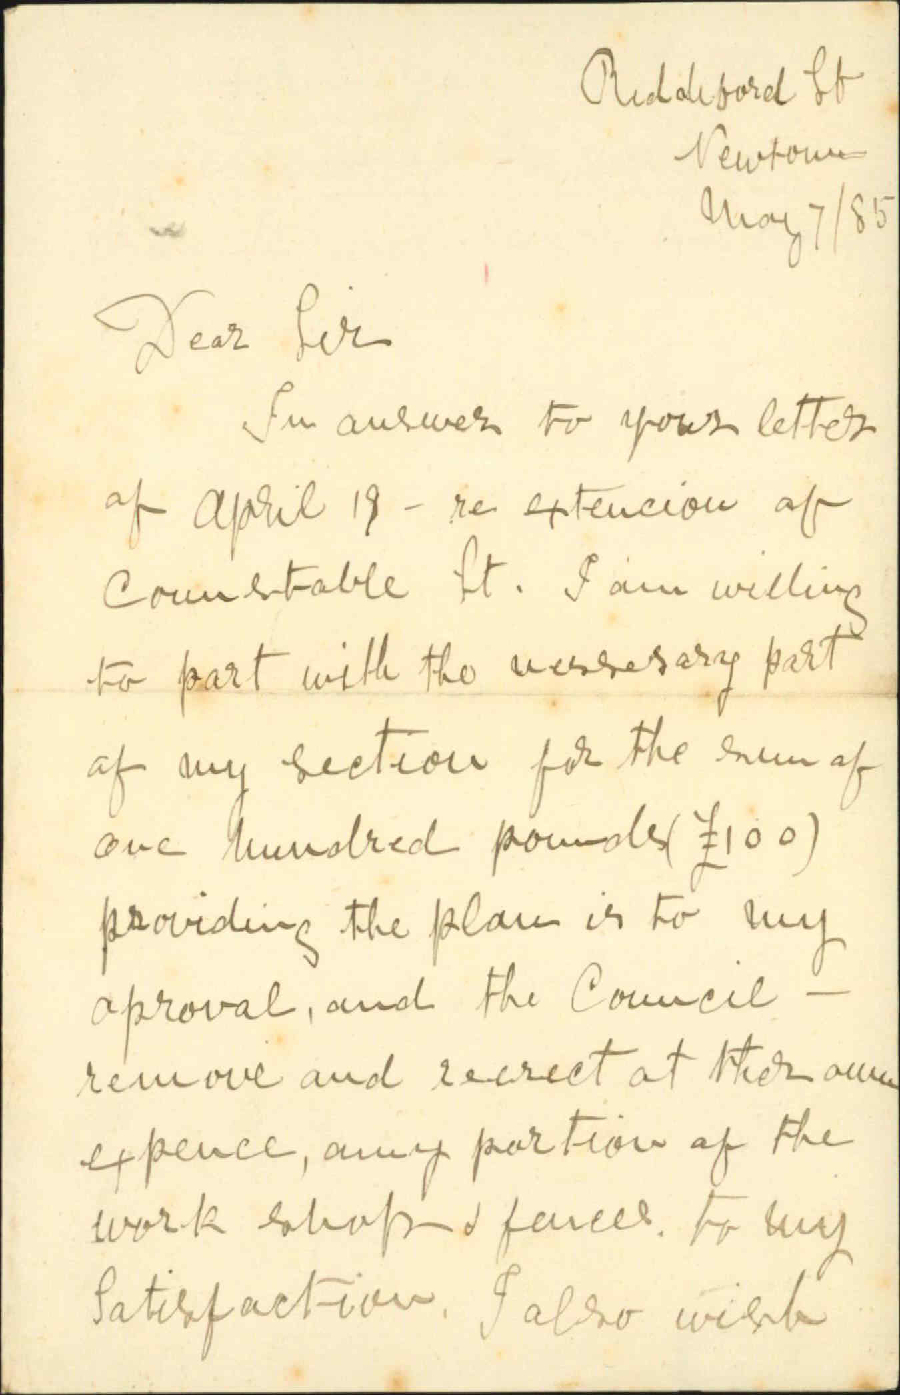 Riddiford St
Newtown
May 7/85
Dear Sir
In answer to your letter
of April 19 - re extencion of
Counstable St. I am willing
to part with the nessesary part
of my section for the sum of
one hundred pounds (£100)
providing the plan is to my
aproval, and the Council -
remove and reerect at ther own
expence, anny portion of the
work shops & fences. to my
Satisfaction. I also wish